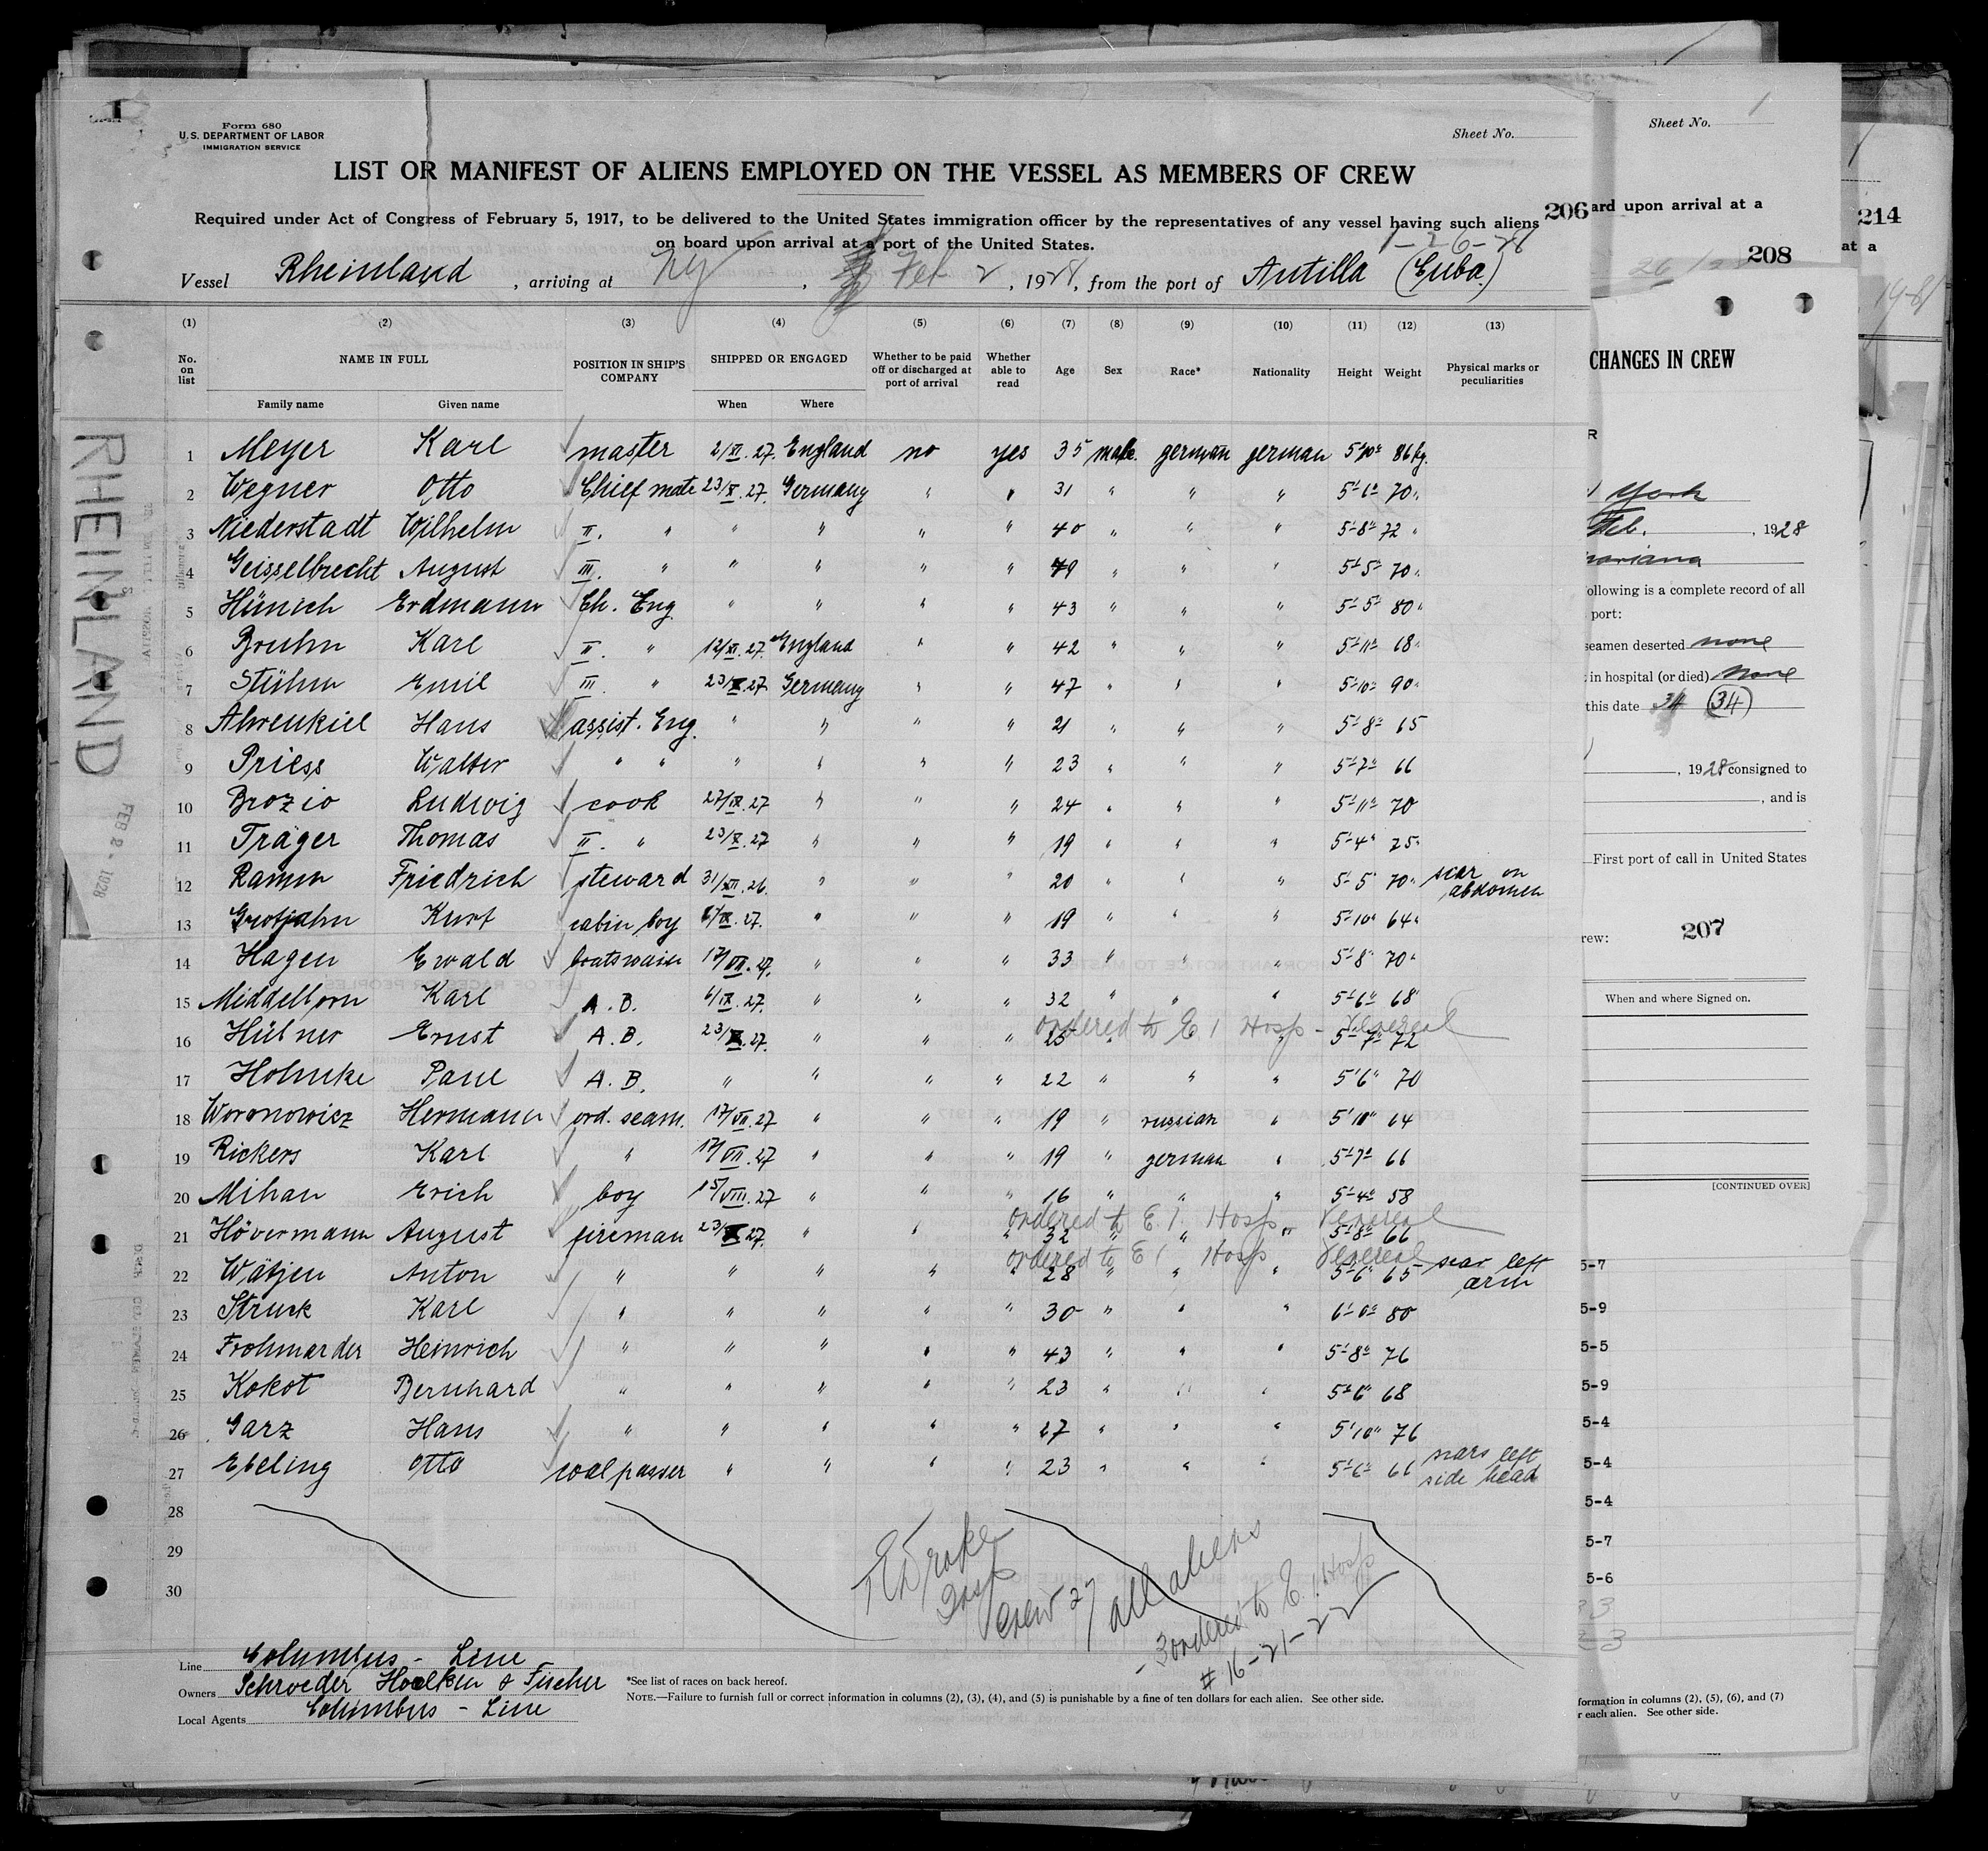 Form 680
U.S. DEPARTMENT OF LABOR
IMMIGRATION SERVICE
Sheet No.
LIST OR MANIFEST OF ALIENS EMPLOYED ON THE VESSEL AS MEMBERS OF CREW
Required under Act of Congress of February 5, 1917, to be delivered to the United States immigration officer by the representatives of any vessel having such aliens
on board upon arrival at a port of the United States.
206
1-26-28
Vessel Rheinland, arriving at NY, Feb 2, 1928, from the port of Antilla (Cuba.)
(1) (2) (3) (4) (5) (6) (7) (8) (9) (10) (11) (12) (13)
No. on list NAME IN FULL POSITION IN SHIP'S COMPANY SHIPPED OR ENGAGED Whether to be paid off or discharged at port of arrival Whether able to read Age Sex Race* Nationality Height Weight Physical marks or peculiarities
Family name Given name When Where
1 Meyer Karl master 2/XI.27. England no yes 35 male german german 5'10" 86 kg.
2 Wegner Otto Chief mate 23/X.27. Germany " " 31 " " " 5'6" 70 "
3 Niederstadt Wilhelm II. " " " " " 40 " " " 5'8" 72 "
4 Geisselbrecht August III. " " " " " 49 " " " 5'5" 70 "
5 Hünich Erdmann Ch. Eng " " " " 43 " " " 5'5" 80 "
6 Bruhn Karl II. " 12/XI.27. England " " 42 " " " 5'11" 68 "
7 Stühm Emil III. " 23/X.27 Germany " " 47 " " " 5'10" 90 "
8 Ahrenkiel Hans assist. Eng. " " " " 21 " " " 5'8" 65
9 Priess Walter " " " " " " 23 " " " 5'7" 66
10 Brozio Ludwig cook 27/IX.27 " " " 24 " " " 5'11" 70
11 Träger Thomas II. " 23/X.27 " " " 19 " " " 5'4" 75 "
12 Ramm Friedrich steward 31/XII.26. " " " 20 " " " 5'5" 70 " scar on abdomen
13 Grotjahn Kurt cabin boy 27. " " " 19 " " " 5'10" 64 "
14 Hagen Ewald boatswain 17/VII.27. " " " 33 " " " 5'8" 70 "
15 Middelborn Karl A.B. 6/IX.27. " " " 32 " " " 5'6" 68 "
ordered to E I Hosp - Venereal
16 Hübner Ernst A.B. 23/X.27. " " " 25 " " 5'7" 72
17 Holmke Paul A.B. " " " " 22 " " " 5'6" 70
18 Woronowicz Hermann ord. seam. 17/VII.27 " " " 19 " russian " 5'10" 64
19 Rickers Karl " 17/VII.27 " " " 19 " german " 5'7" 66
20 Mihan Erich boy 15/VIII.27 " " " 16 " " " 5'4" 58
ordered to E.I. Hosp Venereal
21 Hövermann August fireman 23/X27. " " " 32 " " " 5'8" 66
ordered to E I Hosp Venereal
22 Wätjen Anton " " " " " 28 " " " 5'6" 65 scar left arm
23 Struck Karl " " " " " 30 " " " 6'0" 80
24 Frohmarder Heinrich " " " " " 43 " " " 5'8" 76
25 Kokot Bernhard " " " " " 23 " " " 5'6" 68
26 Garz Hans " " " " " 27 " " " 5'10" 76
27 Ebeling Otto coalpasser " " " " 23 " " " 5'6" 66 scars left side head
28
29
30
Drake
Insp
Crew 27 all aliens
- 3 ordered to E. I. Hosp
# 16-21-22
Line Columbus - Line
Owners Schroeder Hoelken & Fischer
Local Agents Columbus - Line
*See list of races on back hereof.
NOTE.—Failure to furnish full or correct information in columns (2), (3), (4), and (5) is punishable by a fine of ten dollars for each alien. See other side.
RHEINLAND
FEB 2 - 1928
Sheet No. 1
ard upon arrival at a
208
CHANGES IN CREW
York
Feb., 1928
following is a complete record of all
port:
seamen deserted none
in hospital (or died) none
this date 34 (34)
, 1928 consigned to
, and is
First port of call in United States
rew: 207
When and where Signed on.
[CONTINUED OVER]
5-7
5-9
5-5
5-9
5-4
5-4
5-4
5-7
5-6
formation in columns (2), (5), (6), and (7)
r each alien. See other side.
214
at a